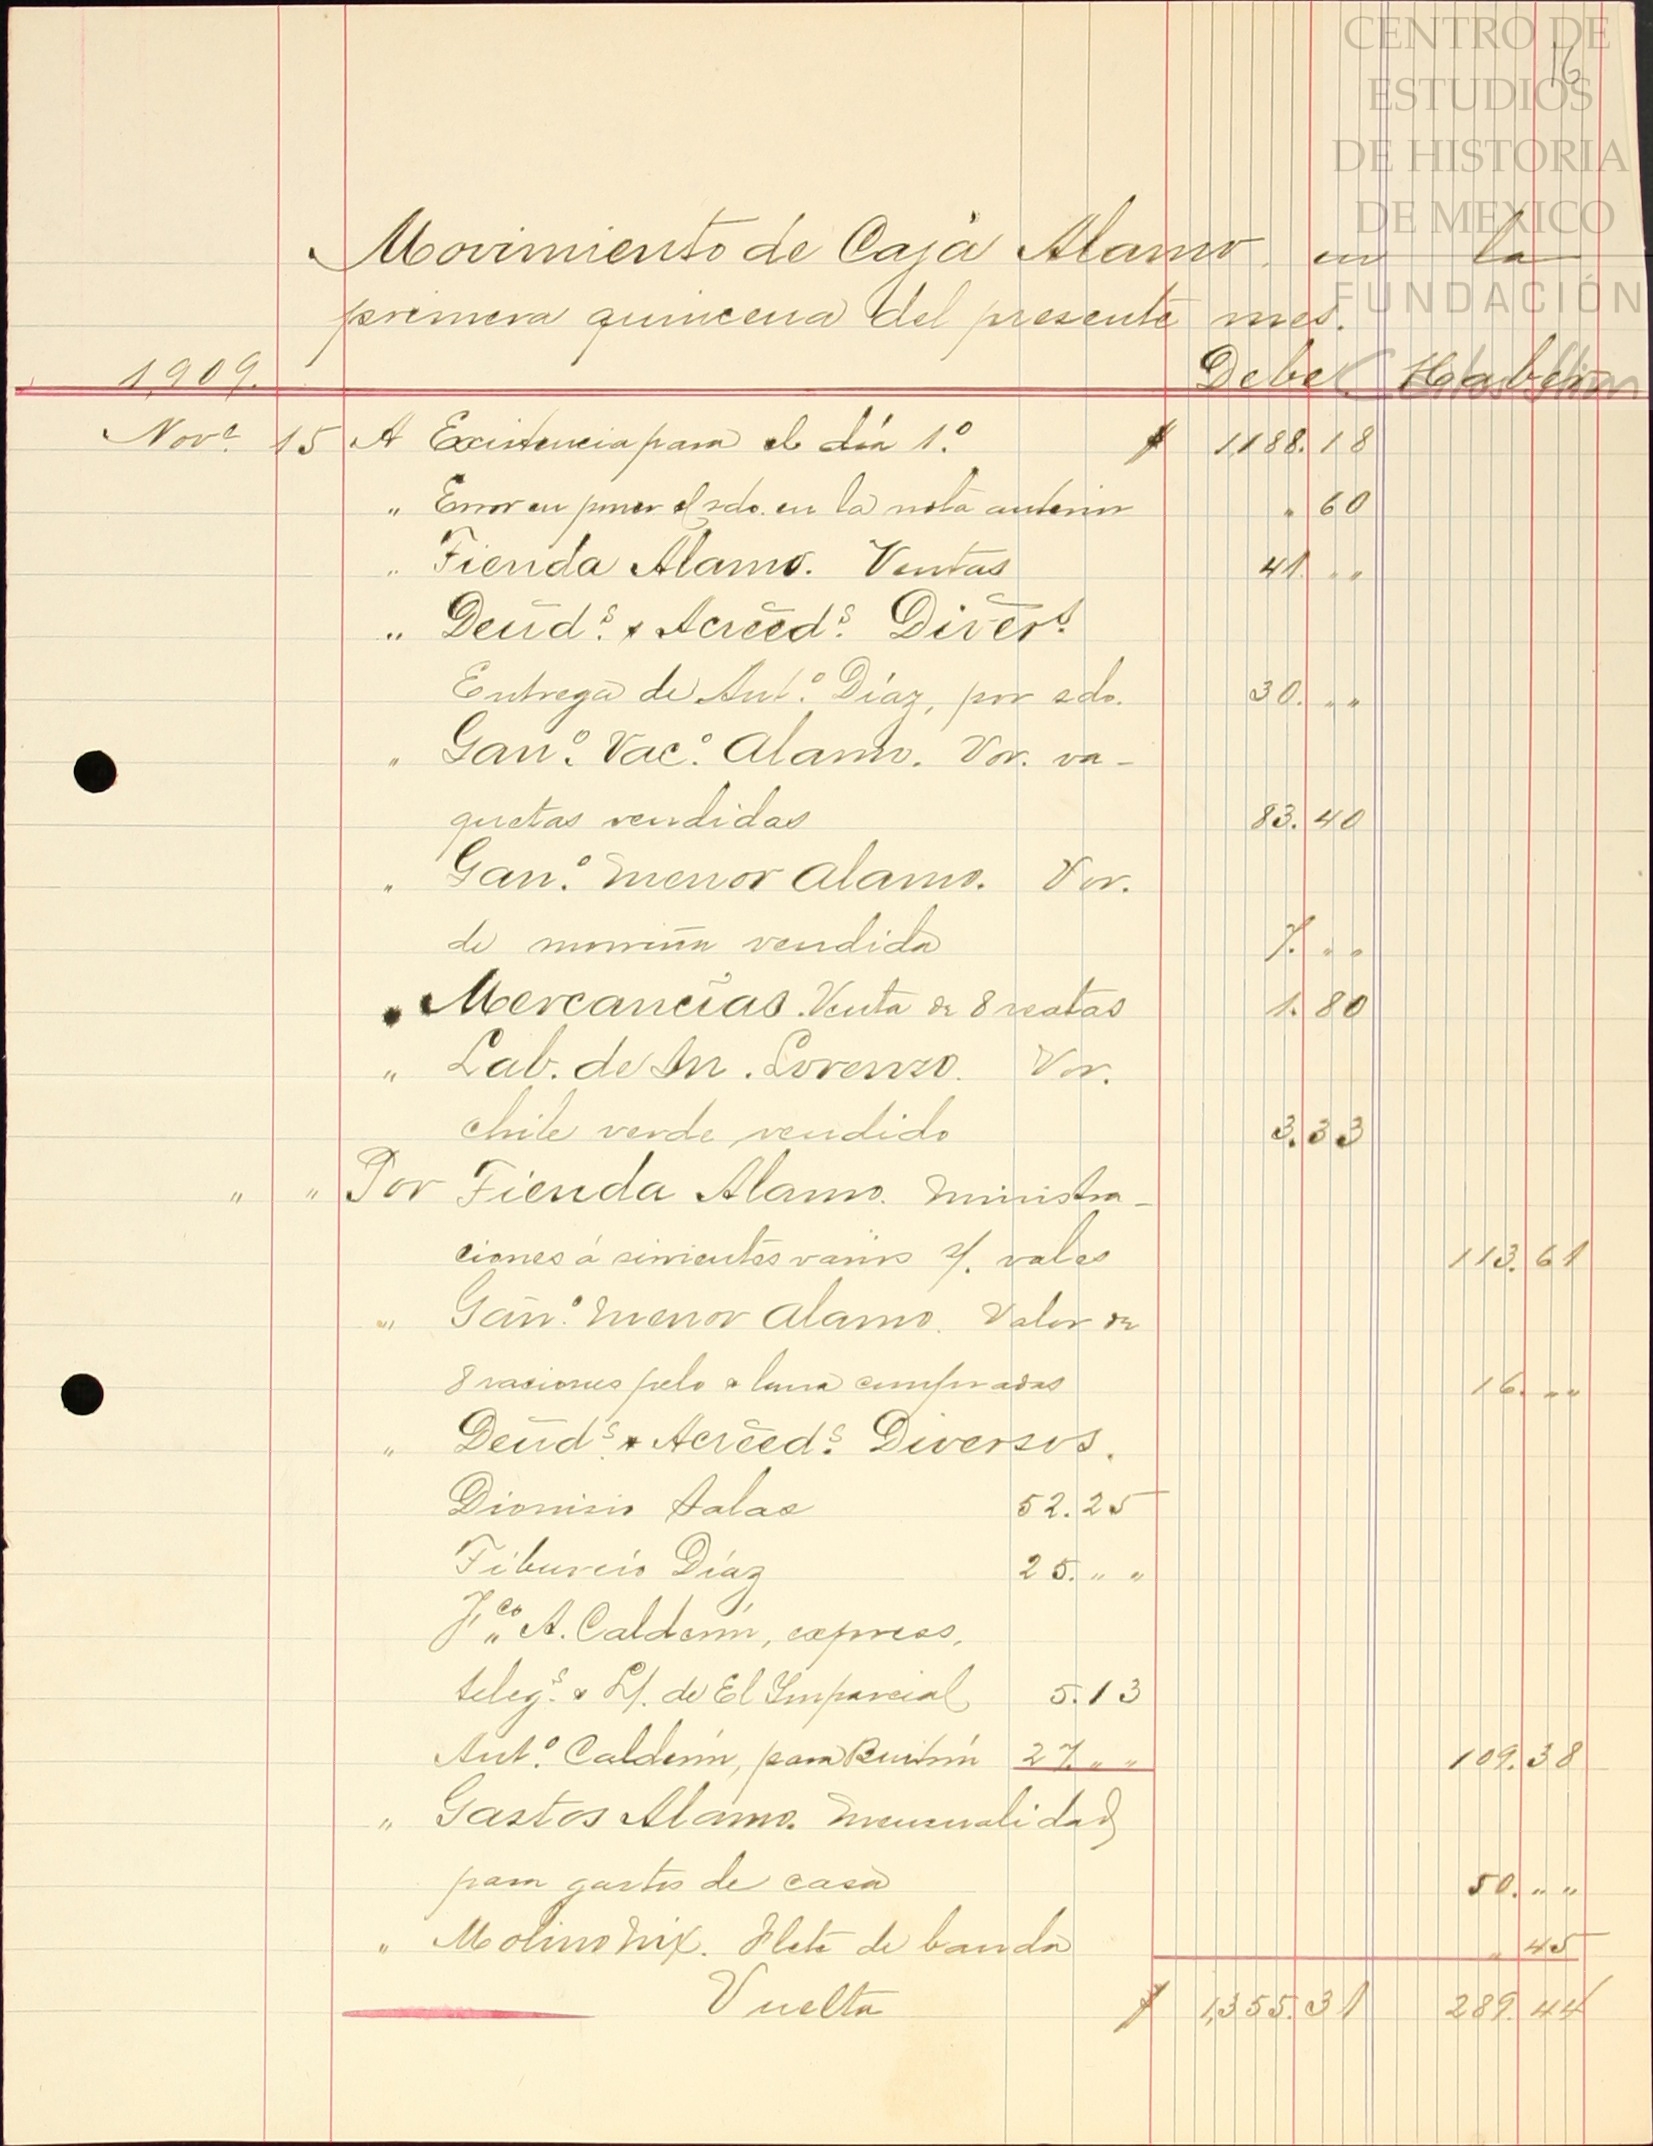 CENTRO DE
ESTUDIOS
DE HISTORIA
DE MEXICO
FUNDACIÓN
16
Movimiento de Caja Alamo en la
primera quincena del presente mes.
1,909. Debe Haber
Nove. 15 A Existencia para el día 1.º $ 1,188.18
" Error en poner el sdo. en la nota anterior " 60
" Tienda Alamo. Ventas 41. " "
" Deud.s & Acreed.s Divers.
Entrega de Ant.º Díaz, por sdo. 30. " "
" Gan.º Vac.º Alamo. Vor. va-
quetas vendidas 83.40
" Gan.º Menor Alamo. Vor.
de morriña vendida 7. " "
" Mercancias. Venta de 8 reatas 1.80
" Lab. de Sn. Lorenzo. Vor.
chile verde vendido 3.33
" " Por Tienda Alamo. Ministra-
ciones á sirvientes varios s/. vales 113.61
" Gan.º Menor Alamo. Valor de
8 raciones pelo & lana compradas 16. " "
" Deud.s & Acreed.s Diversos.
Dionisio Salas 52.25
Tiburcio Díaz 25. " "
F.co A. Calderón, express,
teleg.s & de El Imparcial 5.13
Ant.º Calderón, para Buitrón 27. " " 109.38
" Gastos Alamo. Mensualidad
para gastos de casa 50. " "
" Molino Nix. Flete de banda " 45
Vuelta $ 1,355.31 289.44